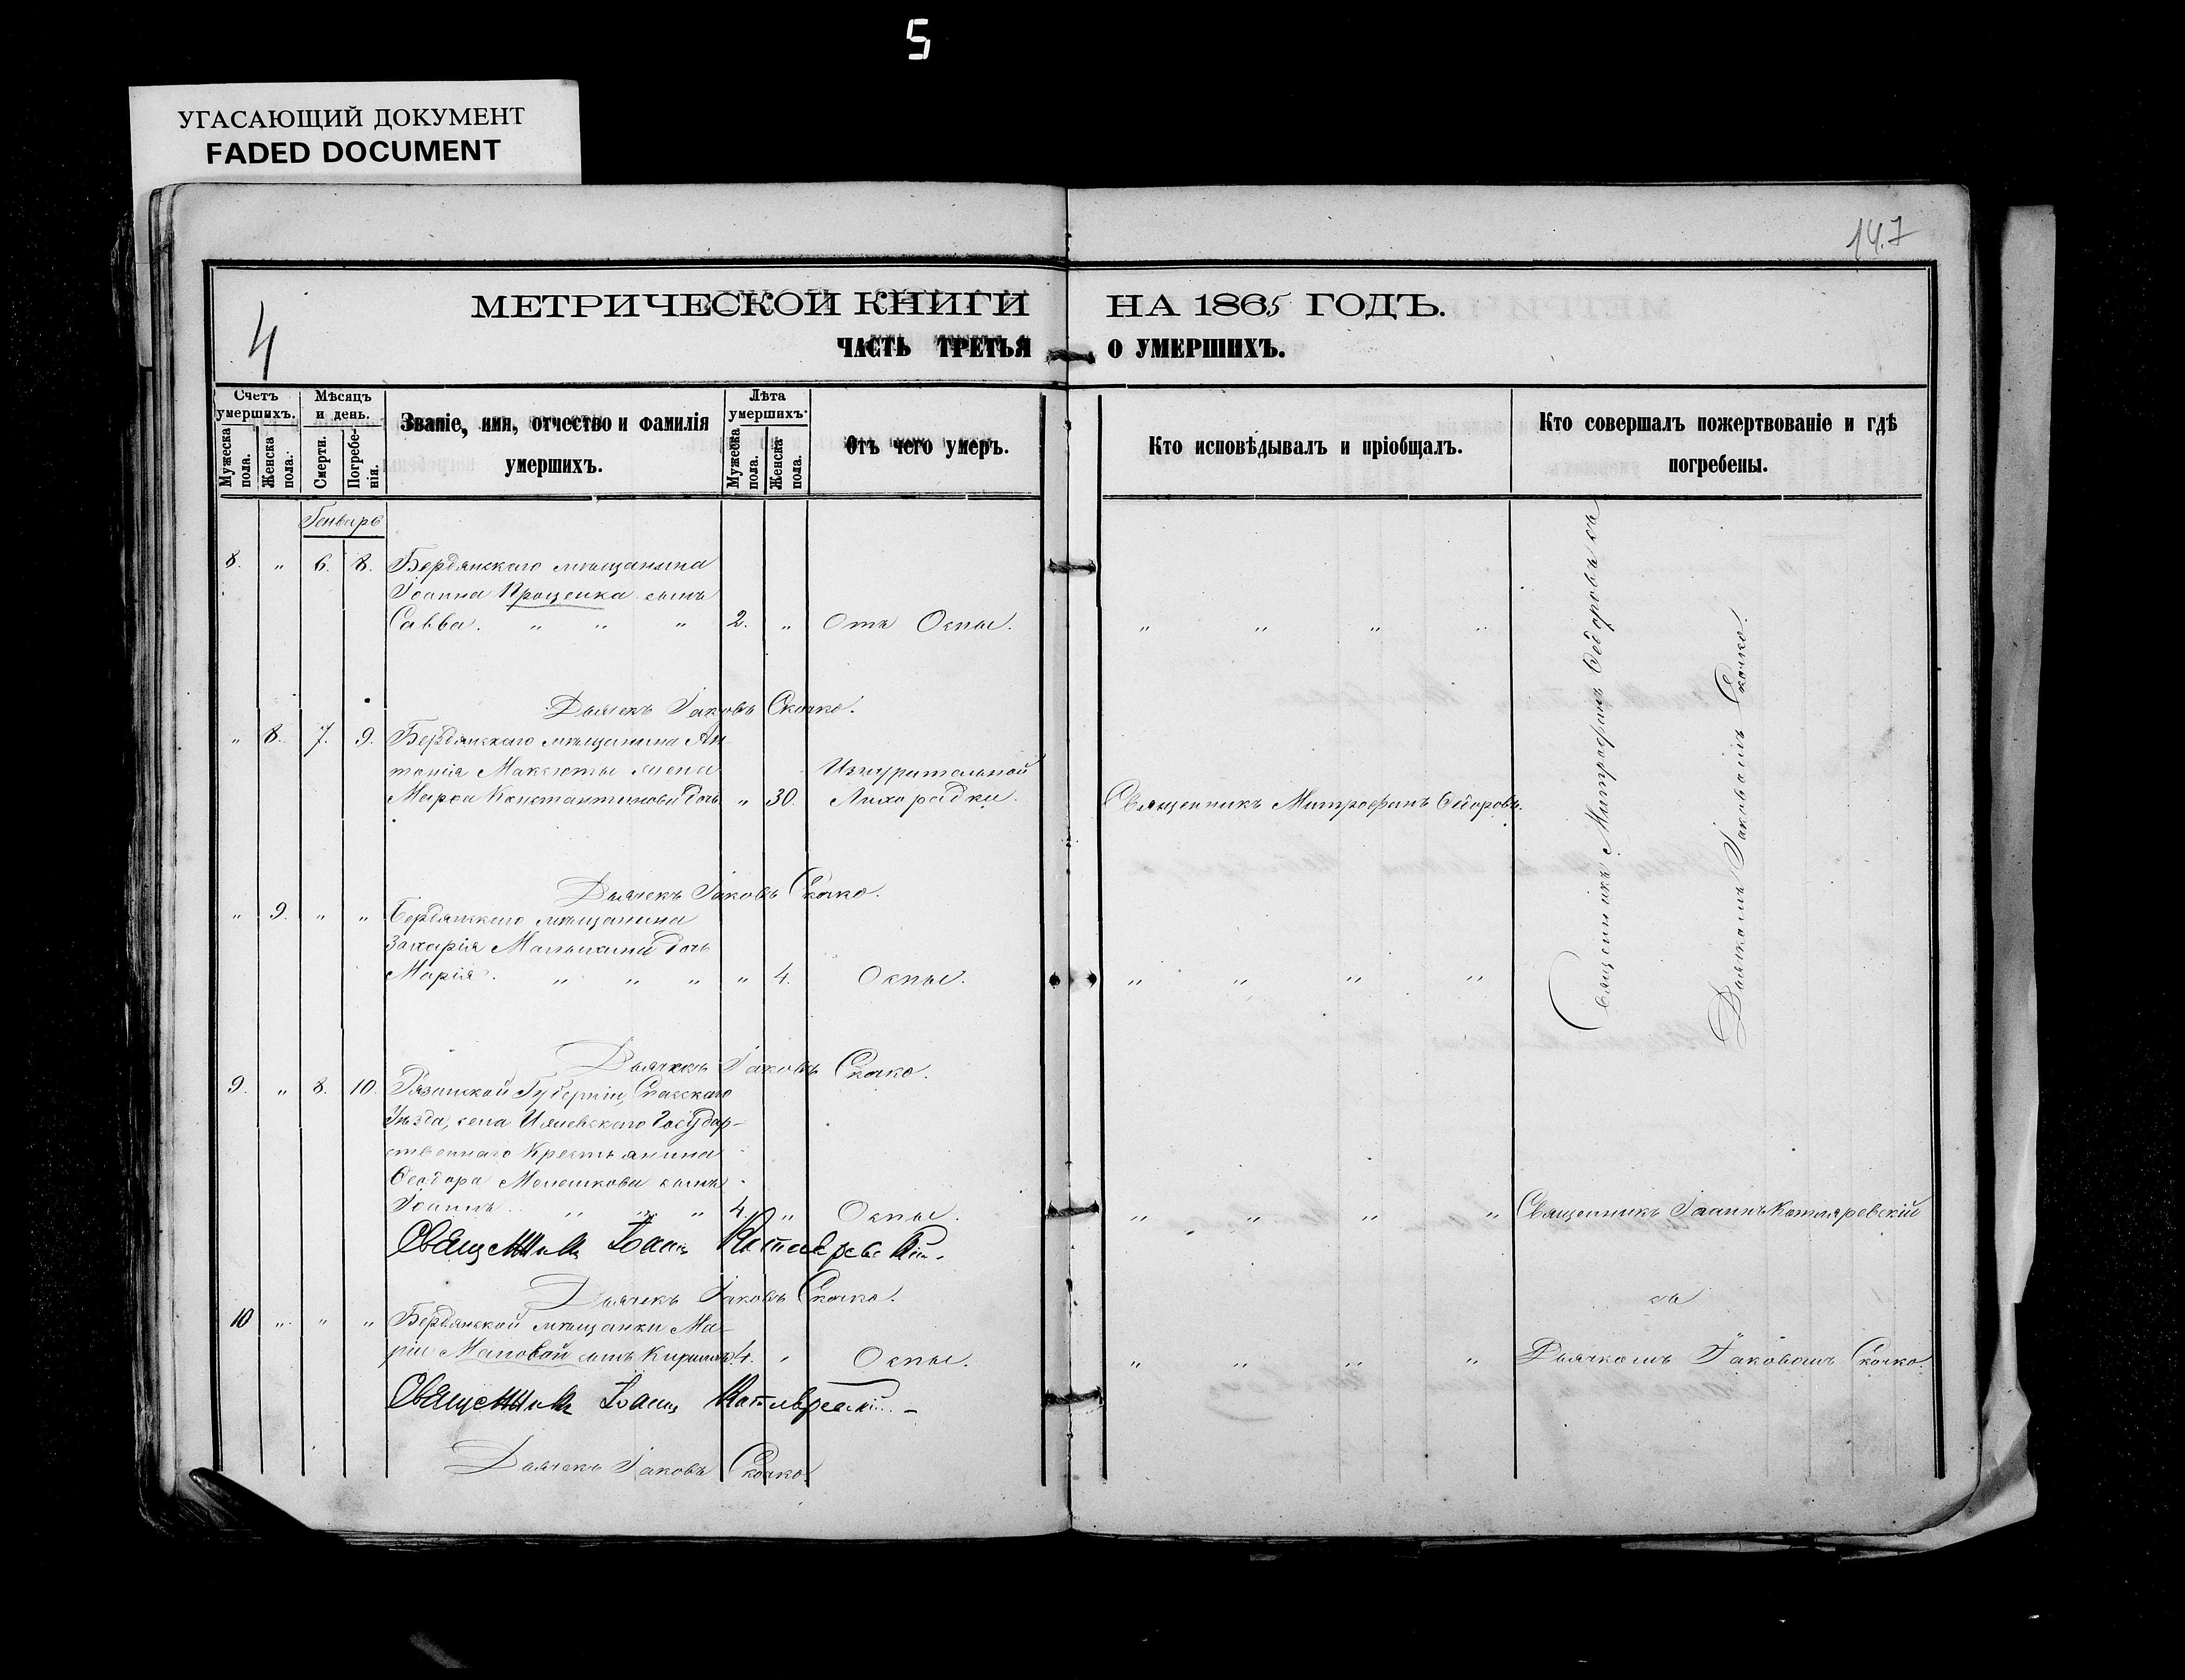 5
УГАСАЮЩИЙ ДОКУМЕНТ
FADED DOCUMENT
14.7
4
МЕТРИЧЕСКОЙ КНИГИ НА 1865 ГОДЪ.
ЧАСТЬ ТРЕТЬЯ О УМЕРШИХЪ.
Счетъ умершихъ.
Мужеска пола.
Женска пола.
Мѣсяцъ и день.
Смерти.
Погребенія.
Званіе, имя, отчество и фамилія умершихъ.
Лѣта умершихъ.
Мужеска пола.
Женска пола.
Отъ чего умеръ.
Кто исповѣдывалъ и пріобщалъ.
Кто совершалъ пожертвованіе и гдѣ погребены.
Генварь
8. „ 6. 8. Бердянскаго мѣщанина
Іоанна Проценка сынъ
Савва. „ „ „ 2. „ Отъ Оспы. „ „ „ „
Дьячекъ Іаковъ Скочко.
„ 8. 7. 9. Бердянскаго мѣщанина Ан-
тонія Максюты жена Изнурительной
Марѳа Константинова дочь „ 30. Лихорадки. Священникъ Митрофанъ Ѳедоровъ.
Дьячекъ Іаковъ Скочко.
„ 9. „ „ Бердянскаго мѣщанина
Захарія дочь
Марія. „ „ „ „ 4. Оспы. „ „ „ „
Священникъ Митрофанъ Ѳедоровъ съ
Дьячкомъ Іаковомъ Скочко.
Дьячекъ Іаковъ Скочко.
9. „ 8. 10. Рязанской Губерніи, Спасскаго
Уѣзда, села Ижевскаго Государ-
ственнаго Крестьянина
Ѳеодора Мелешкова сынъ
Іоаннъ. „ „ „ 4. „ Оспы. „ „ „ „ Священникъ Іоаннъ Котляревскій
Священникъ Іоаннъ Котляревскій.
Дьячекъ Іаковъ Скочко. съ
10 „ „ „ Бердянской мѣщанки Ма-
ріи Маповой сынъ Кириллъ. 4. „ Оспы. „ „ „ „ Дьячкомъ Іаковомъ Скочко.
Священникъ Іоаннъ Котляревскій. –
Дьячекъ Іаковъ Скочко.